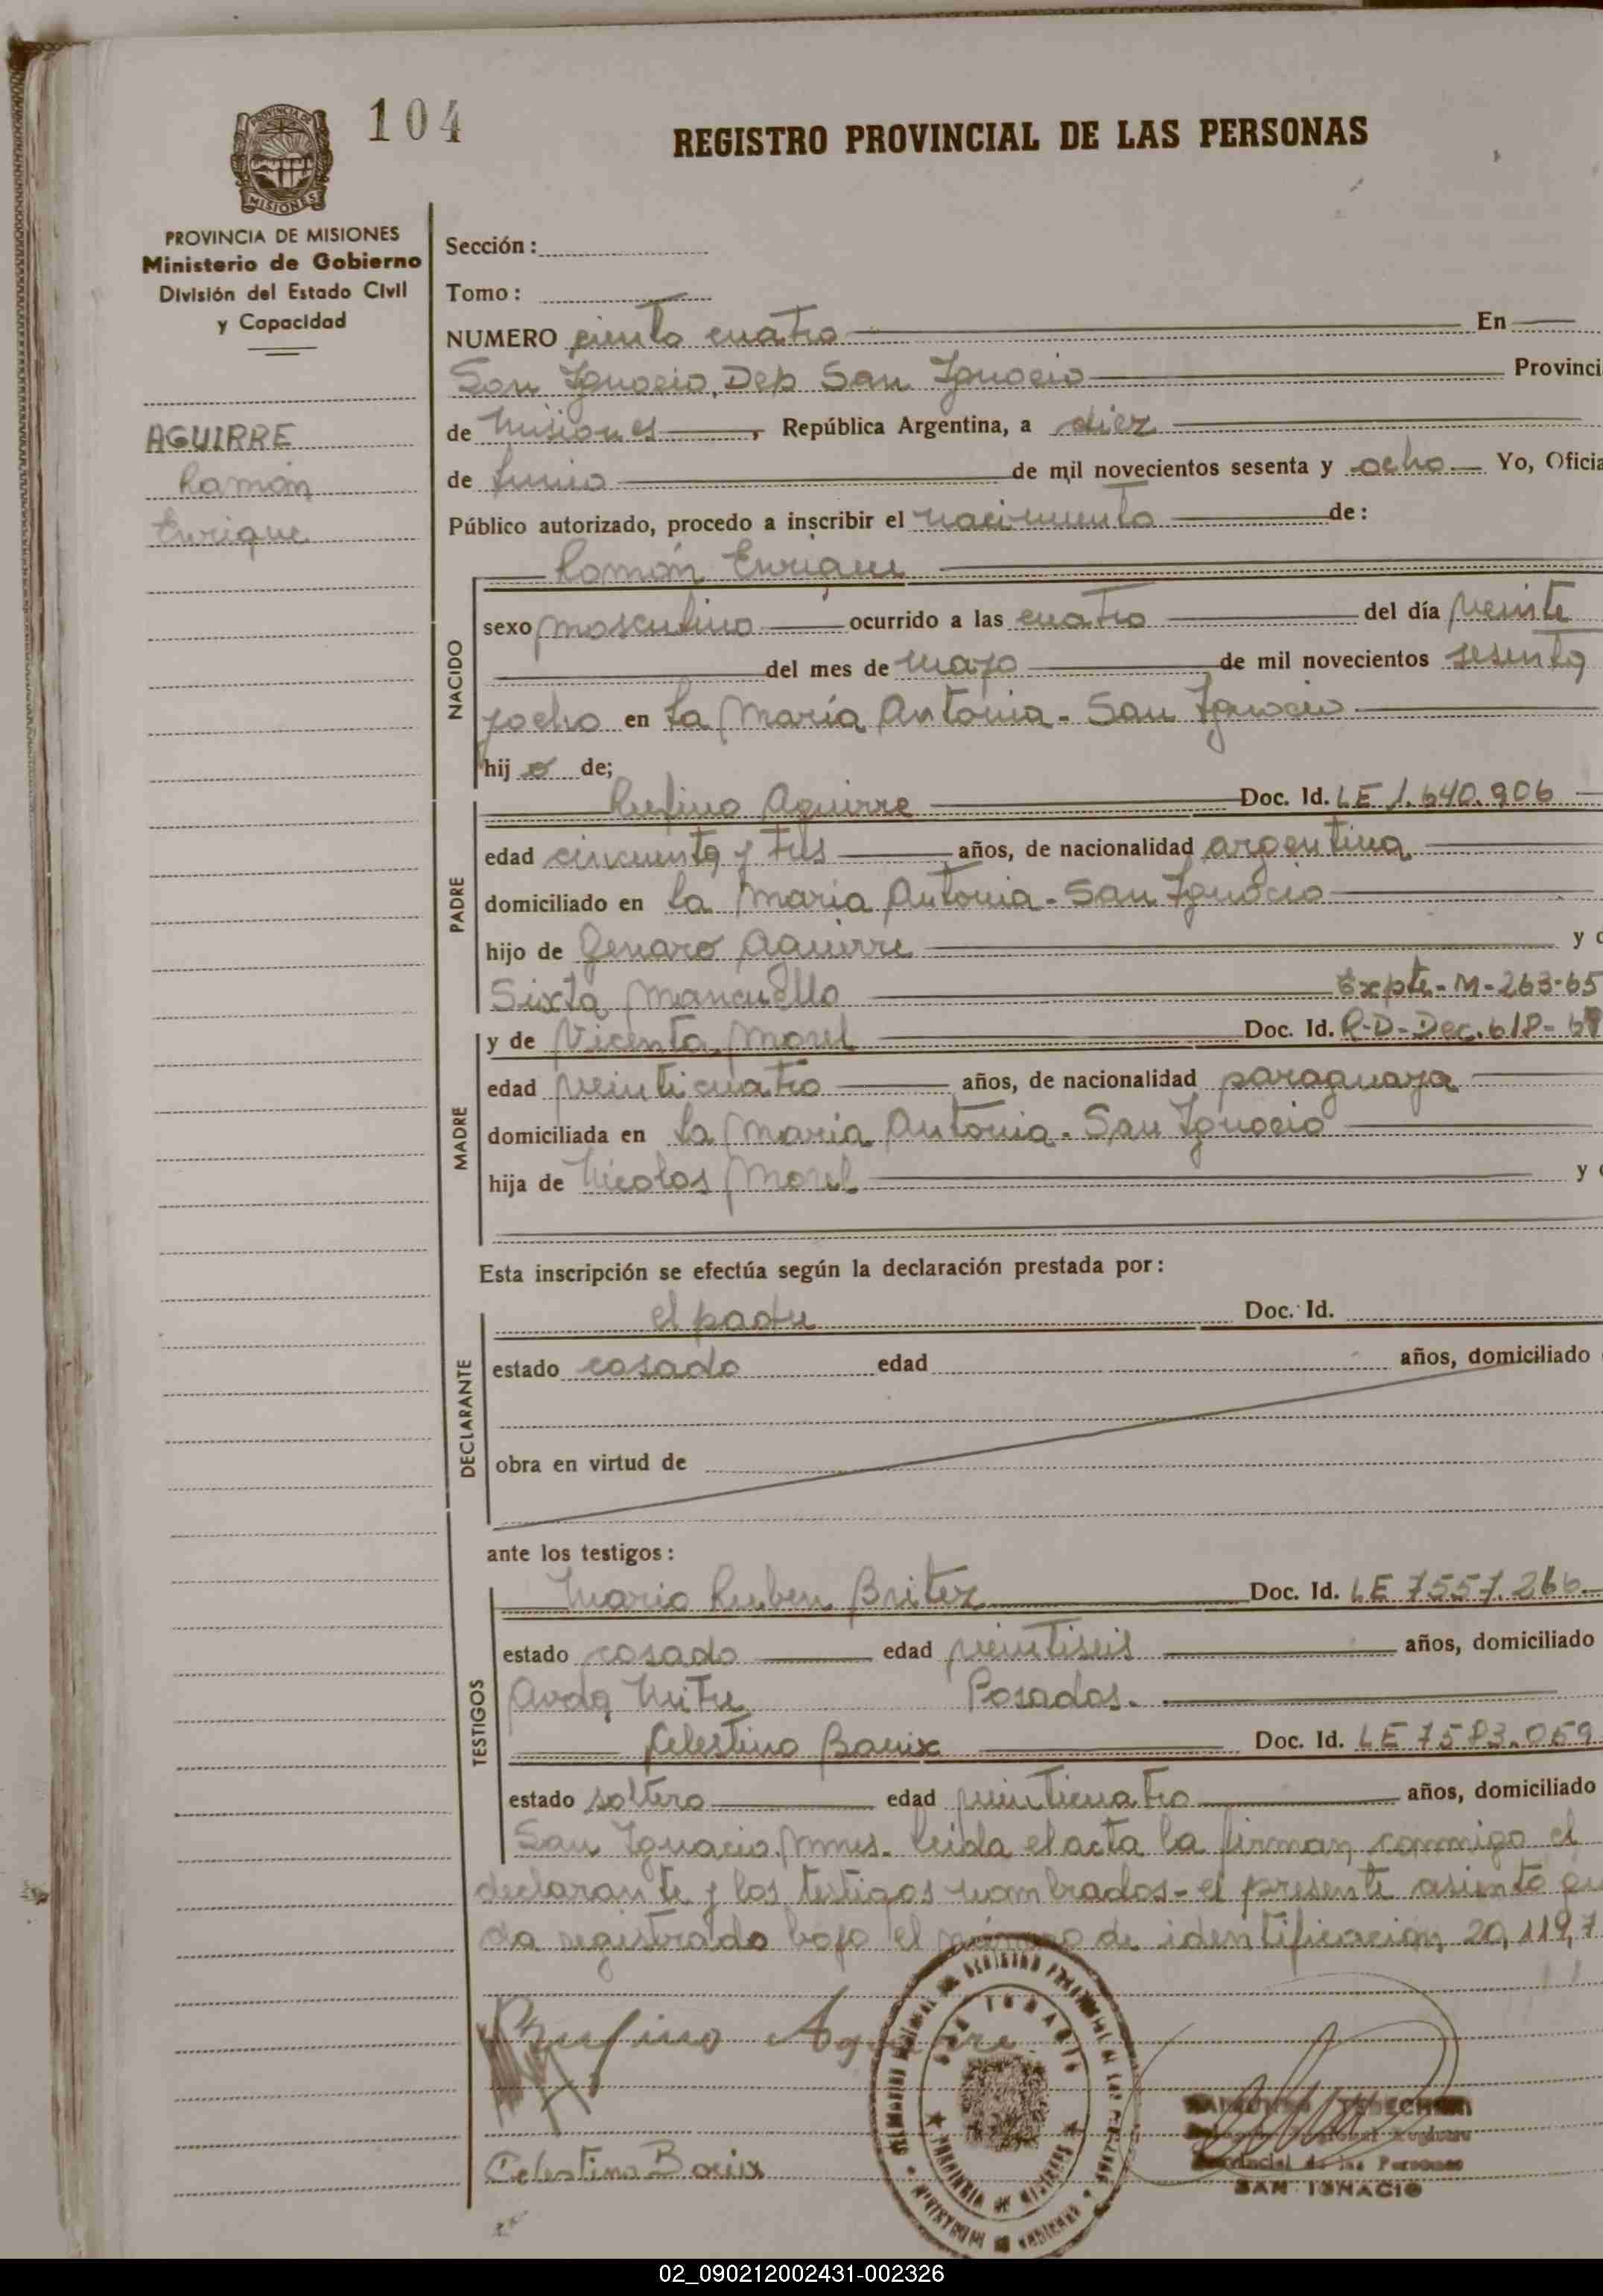 104
REGISTRO PROVINCIAL DE LAS PERSONAS
PROVINCIA DE MISIONES
Ministerio de Gobierno
División del Estado Civil
y Capacidad
AGUIRRE
Ramón
Enrique
Sección:
Tomo:
NUMERO ciento cuatro En
San Ignacio, Dep San Ignacio Provinci
de Misiones, República Argentina, a diez
de Junio de mil novecientos sesenta y ocho Yo, Oficia
Público autorizado, procedo a inscribir el nacimiento de:
Ramón Enrique
NACIDO
sexo masculino ocurrido a las cuatro del día veinte
del mes de mayo de mil novecientos sesenta
yocho en La María Antonia - San Ignacio
hijo de;
PADRE
Rufino Aguirre Doc. Id. LE 1.640.906
edad cincuenta y tres años, de nacionalidad argentina
domiciliado en La María Antonia - San Ignacio
hijo de Genaro Aguirre y
Sixta Mancuello Expte-M-263-65
MADRE
y de Vicenta Morel Doc. Id. R-D-Dec.
edad veinticuatro años, de nacionalidad paraguaya
domiciliada en La María Antonia - San Ignacio
hija de Nicolas Morel y
Esta inscripción se efectúa según la declaración prestada por:
DECLARANTE
el padre Doc. Id.
estado casado edad años, domiciliado
obra en virtud de
ante los testigos:
TESTIGOS
Mario Ruben Britez Doc. Id. LE 7557.266
estado casado edad veintiseis años, domiciliado
Avda Mitre Posadas.
Celestino Bariix Doc. Id. LE 7583.059
estado soltero edad veinticuatro años, domiciliado
San Ignacio, Mnes. Leida el acta la firman conmigo el
declarante y los testigos nombrados - el presente asiento que
da registrado bajo el número de identificacion 20,119,7
Rufino Aguirre
Celestino
Provincial de las Personas
SAN IGNACIO
02_090212002431-002326